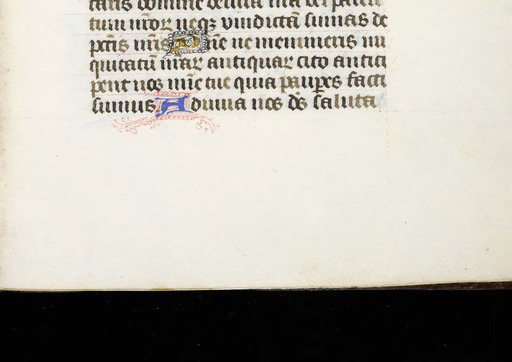 caris domine delicta nr̄a vel paren
tum nr̄or neqꝫ vindictā sumas de
pctīs nr̄is Dn̄e ne memineris ini
quitatū nr̄ar antiquar cito antici
pent nos mīe tue quia paup̄es facti
sumus Adiuva nos ds̄ saluta